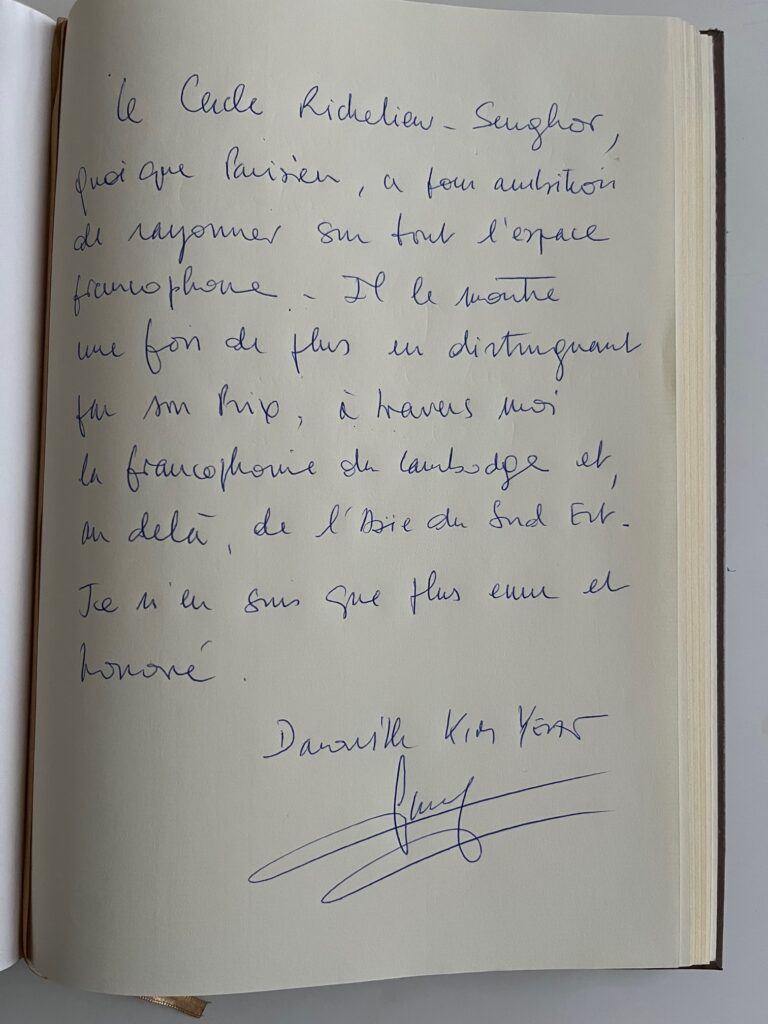 Le Cercle Richelieu-Senghor,
quoique Parisien, a pour ambition
de rayonner sur tout l'espace
francophone - Il le montre
une fois de plus en distinguant
par son Prix, à travers moi
la francophonie du Cambodge et,
au delà, de l'Asie du Sud Est-
Je n'en suis que plus emu et
honoré.
Kim